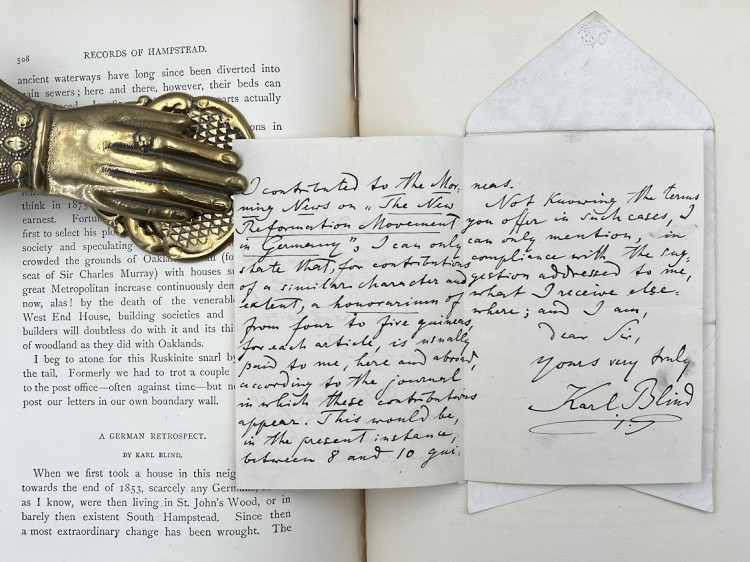 508 RECORDS OF HAMPSTEAD.
ancient waterways have long since been diverted into
sewers; here and there, however, their beds can
parts actually
in
think in 1873
earnest.
first to select his
society and speculating
crowded the grounds of
seat of Sir Charles Murray) with houses
great Metropolitan increase continuously
now, alas! by the death of the
West End House, building societies and
builders will doubtless do with it and its
of woodland as they did with Oaklands.
I beg to atone for this Ruskinite snarl by
the tail. Formerly we had to trot a couple
to the post office—often against time—but
post our letters in our own boundary wall.
A GERMAN RETROSPECT.
BY KARL BLIND.
When we first took a house in this
towards the end of 1853, scarcely any
as I know, were then living in St. John's Wood, or in
barely then existent South Hampstead. Since then
a most extraordinary change has been wrought. The
I contributed to the Mor-
ning News on "The New
Reformation Movement
in Germany", I can only
state that, for contributions
of a similar character and
extent, a honorarium of
from four to five guineas
for each article, is usually
paid to me, here and abroad,
according to the journal
in which these contributions
appear. This would be,
in the present instance,
between 8 and 10 gui-
neas.
Not knowing the terms
you offer in such cases, I
can only mention, in
compliance with the sug-
gestion addressed to me,
what I receive else-
where; and I am,
dear Sir,
yours very truly
Karl Blind